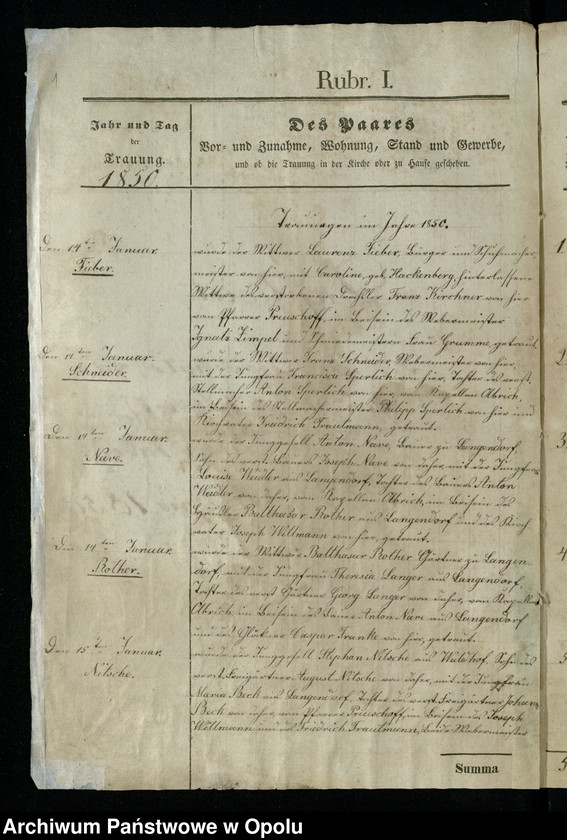 Rubr. I.
Jahr und Tag
der
Trauung.
1850.
Des Paares
Vor- und Zunahme, Wohnung, Stand und Gewerbe,
und ob die Trauung in der Kirche oder zu Hause geschehen.
Trauungen im Jahre 1850.
Den 14ten Januar.
Fieber.
wurde der Wittwer Laurenz Fieber, Bürger und Schuhmacher
meister von hier, mit Caroline, geb. Hackenberg, hinterlassene
Wittwe des verstorbenen Franz Kirchner von hier
vom Pfarrer Preuschoff, im Beisein des Webermeister
Ignatz Zimpel und Schmiedemeister Gramme, getraut.
Den 14ten Januar.
Schneider.
wurde der Wittwer Franz Schneider, Webermeister von hier,
mit der Jungfrau Francisca Sperlich von hier, Tochter des verst.
Stellmacher Anton Sperlich von hier, vom Kapellan Olbrich,
im Beisein des Stellmachermeister Philipp Sperlich von hier und
Kirchvater Friedrich Traulmann, getraut.
Den 14ten Januar.
Nave.
wurde der Junggesell Anton Nave, Bauer zu Langendorf,
Sohn des verst. Bauers Joseph Nave von daher, mit der Jungfrau
Louise aus Langendorf, Tochter des Bauers Anton
von daher, vom Kapellan Olbrich, im Beisein des
Balthasar Rother aus Langendorf und des Kirch
vater Joseph Wellmann von hier, getraut.
Den 14ten Januar.
Rother.
wurde der Wittwer Balthasar Rother Gärtner zu Langen
dorf, mit der Jungfrau Theresia Langer aus Langendorf,
Tochter des verst. Gärtner Georg Langer von daher, vom Kapellan
Olbrich im Beisein des Bauer Anton Nave aus Langendorf
und des Glöckner Caspar Franke von hier, getraut.
Den 15te Januar.
Nitsche.
wurde der Junggesell Stephan Nitsche aus Waldhof, Sohn des
verst. Freigärtner August Nitsche von daher, mit der Jungfrau
Maria Beck aus Langendorf, Tochter des verst. Freigärtner Johann
Beck von daher, vom Pfarrer Preuschoff, im Beisein des Joseph
Wellmann und des Friedrich Traulmann, beide Webermeister
Summa
1
2
3
4
5
5
Archiwum Państwowe w Opolu